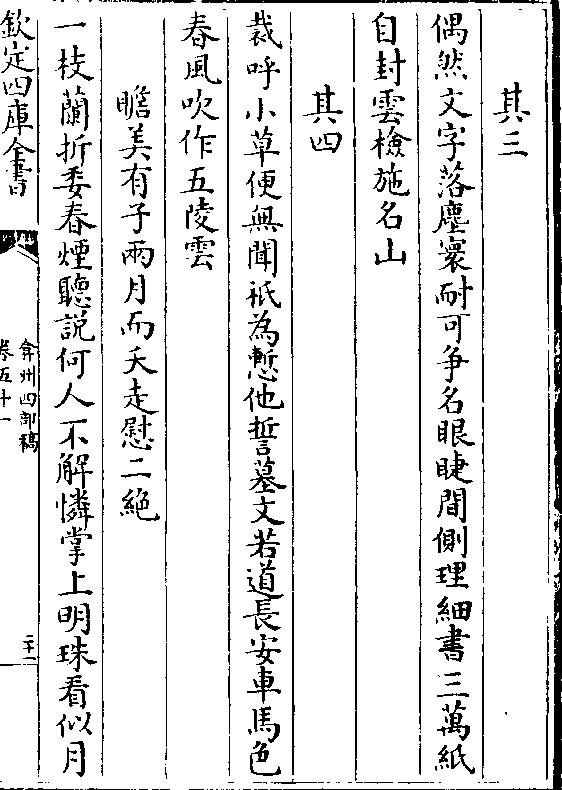 其三
偶然文字落塵寰耐可爭名眼睫間側理細書三萬紙
自封雲檢施名山
其四
裁呼小草便無聞祇為慙他誓墓文若道長安車馬色
春風吹作五陵雲
瞻美有子兩月而夭走慰二絶
一枝蘭折委春煙聽說何人不解憐掌上明珠看似月
欽定四庫全書
弇州四部稿
卷五十一
二十一